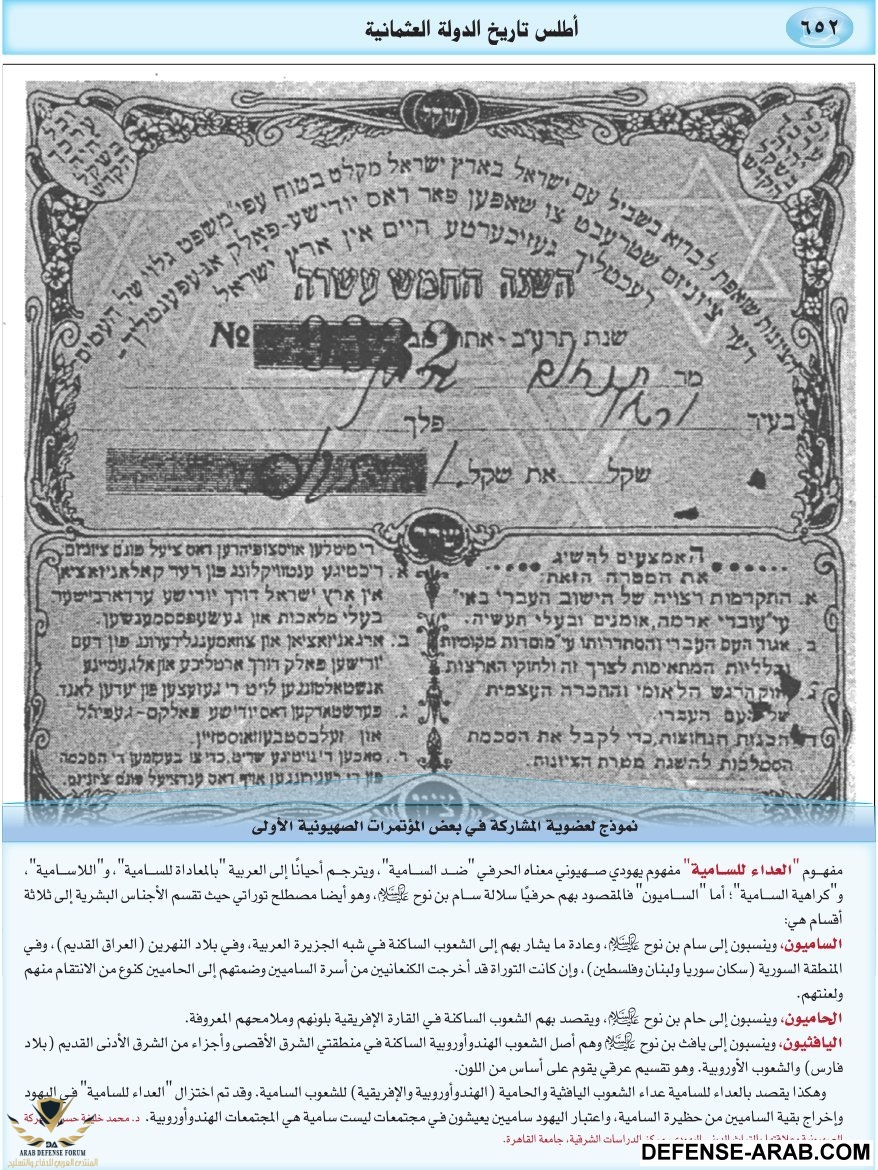 ٦٥٢
أطلس تاريخ الدولة العثمانية
שקל
הציונות שואפת לברוא בשביל עם ישראל בארץ ישראל מקלט בטוח עפ"י משפט גלוי של העמים
דער ציוניזם שטרעבט צו שאפען פאר דאס יודישע-פאלק אנ'עפענטליך-
רעכטליך געזיכערטע היים אין ארץ ישראל
השנה החמש עשרה
שנת תרע"ב
№
מר
בעיר
פלך
שקל
את שקל
האמצעים להשיג
את המטרה הזאת:
א. התקדמות רצויה של הישוב העברי בא"י
ע"י עובדי אדמה, אומנים ובעלי תעשיה.
ב. אגוד העם העברי והסתדרותו ע"י מוסדות מקומיות
וכלליות המתאימות לצרך זה ולחוקי הארצות
ג. הרגש הלאומי וההכרה העצמית
העברי.
הכנות הנחוצות, כדי לקבל את הסכמת
הממלכות להשגת מטרת הציונות.
די מיטלען אויסצופיהרען דאס ציעל פונם ציוניזם
א. ריכטיגע ענטוויקלונג פון דער קאלאניזאציאן
אין ארץ ישראל דורך יודישע ערדארבייטער
בעלי מלאכות און געשעפטסמענשען.
ב. ארגאניזאציאן און צוזאמענגלידערונג פון דעם
יודישען פאלק דורך ארטליכע און אלגעמיינע
אנשטאלטונגען לויט די געזעצען פון יעדען לאנד.
ג. פערשטארקען דאס יודישע פאלקס-געפיהל
און זעלבסטבעוואוסטזיין.
נموذج لعضوية المشاركة في بعض المؤتمرات الصهيونية الأولى
مفهوم "العداء للسامية" مفهوم يهودي صهيوني معناه الحرفي "ضد السامية"، ويترجم أحيانًا إلى العربية "بالمعاداة للسامية"، و"اللاسامية"،
و"كراهية السامية"؛ أما "الساميون" فالمقصود بهم حرفيًا سلالة سام بن نوح عليه السلام، وهو أيضا مصطلح توراتي حيث تقسم الأجناس البشرية إلى ثلاثة
أقسام هي:
الساميون، وينسبون إلى سام بن نوح عليه السلام، وعادة ما يشار بهم إلى الشعوب الساكنة في شبه الجزيرة العربية، وفي بلاد النهرين (العراق القديم)، وفي
المنطقة السورية (سكان سوريا ولبنان وفلسطين)، وإن كانت التوراة قد أخرجت الكنعانيين من أسرة الساميين وضمتهم إلى الحاميين كنوع من الانتقام منهم
ولعنتهم.
الحاميون، وينسبون إلى حام بن نوح عليه السلام، ويقصد بهم الشعوب الساكنة في القارة الإفريقية بلونهم وملامحهم المعروفة.
اليافثيون، وينسبون إلى يافث بن نوح عليه السلام وهم أصل الشعوب الهندوأوروبية الساكنة في منطقتي الشرق الأقصى وأجزاء من الشرق الأدنى القديم (بلاد
فارس) والشعوب الأوروبية. وهو تقسيم عرقي يقوم على أساس من اللون.
وهكذا يقصد بالعداء للسامية عداء الشعوب اليافثية والحامية (الهندوأوروبية والإفريقية) للشعوب السامية. وقد تم اختزال "العداء للسامية" في اليهود
وإخراج بقية الساميين من حظيرة السامية، واعتبار اليهود ساميين يعيشون في مجتمعات ليست سامية هي المجتمعات الهندوأوروبية. د. محمد خليفة حسن
مركز الدراسات الشرقية، جامعة القاهرة.
DA
ARAB DEFENSE FORUM
المنتدى العربي للدفاع والتسليح
DEFENSE-ARAB.COM